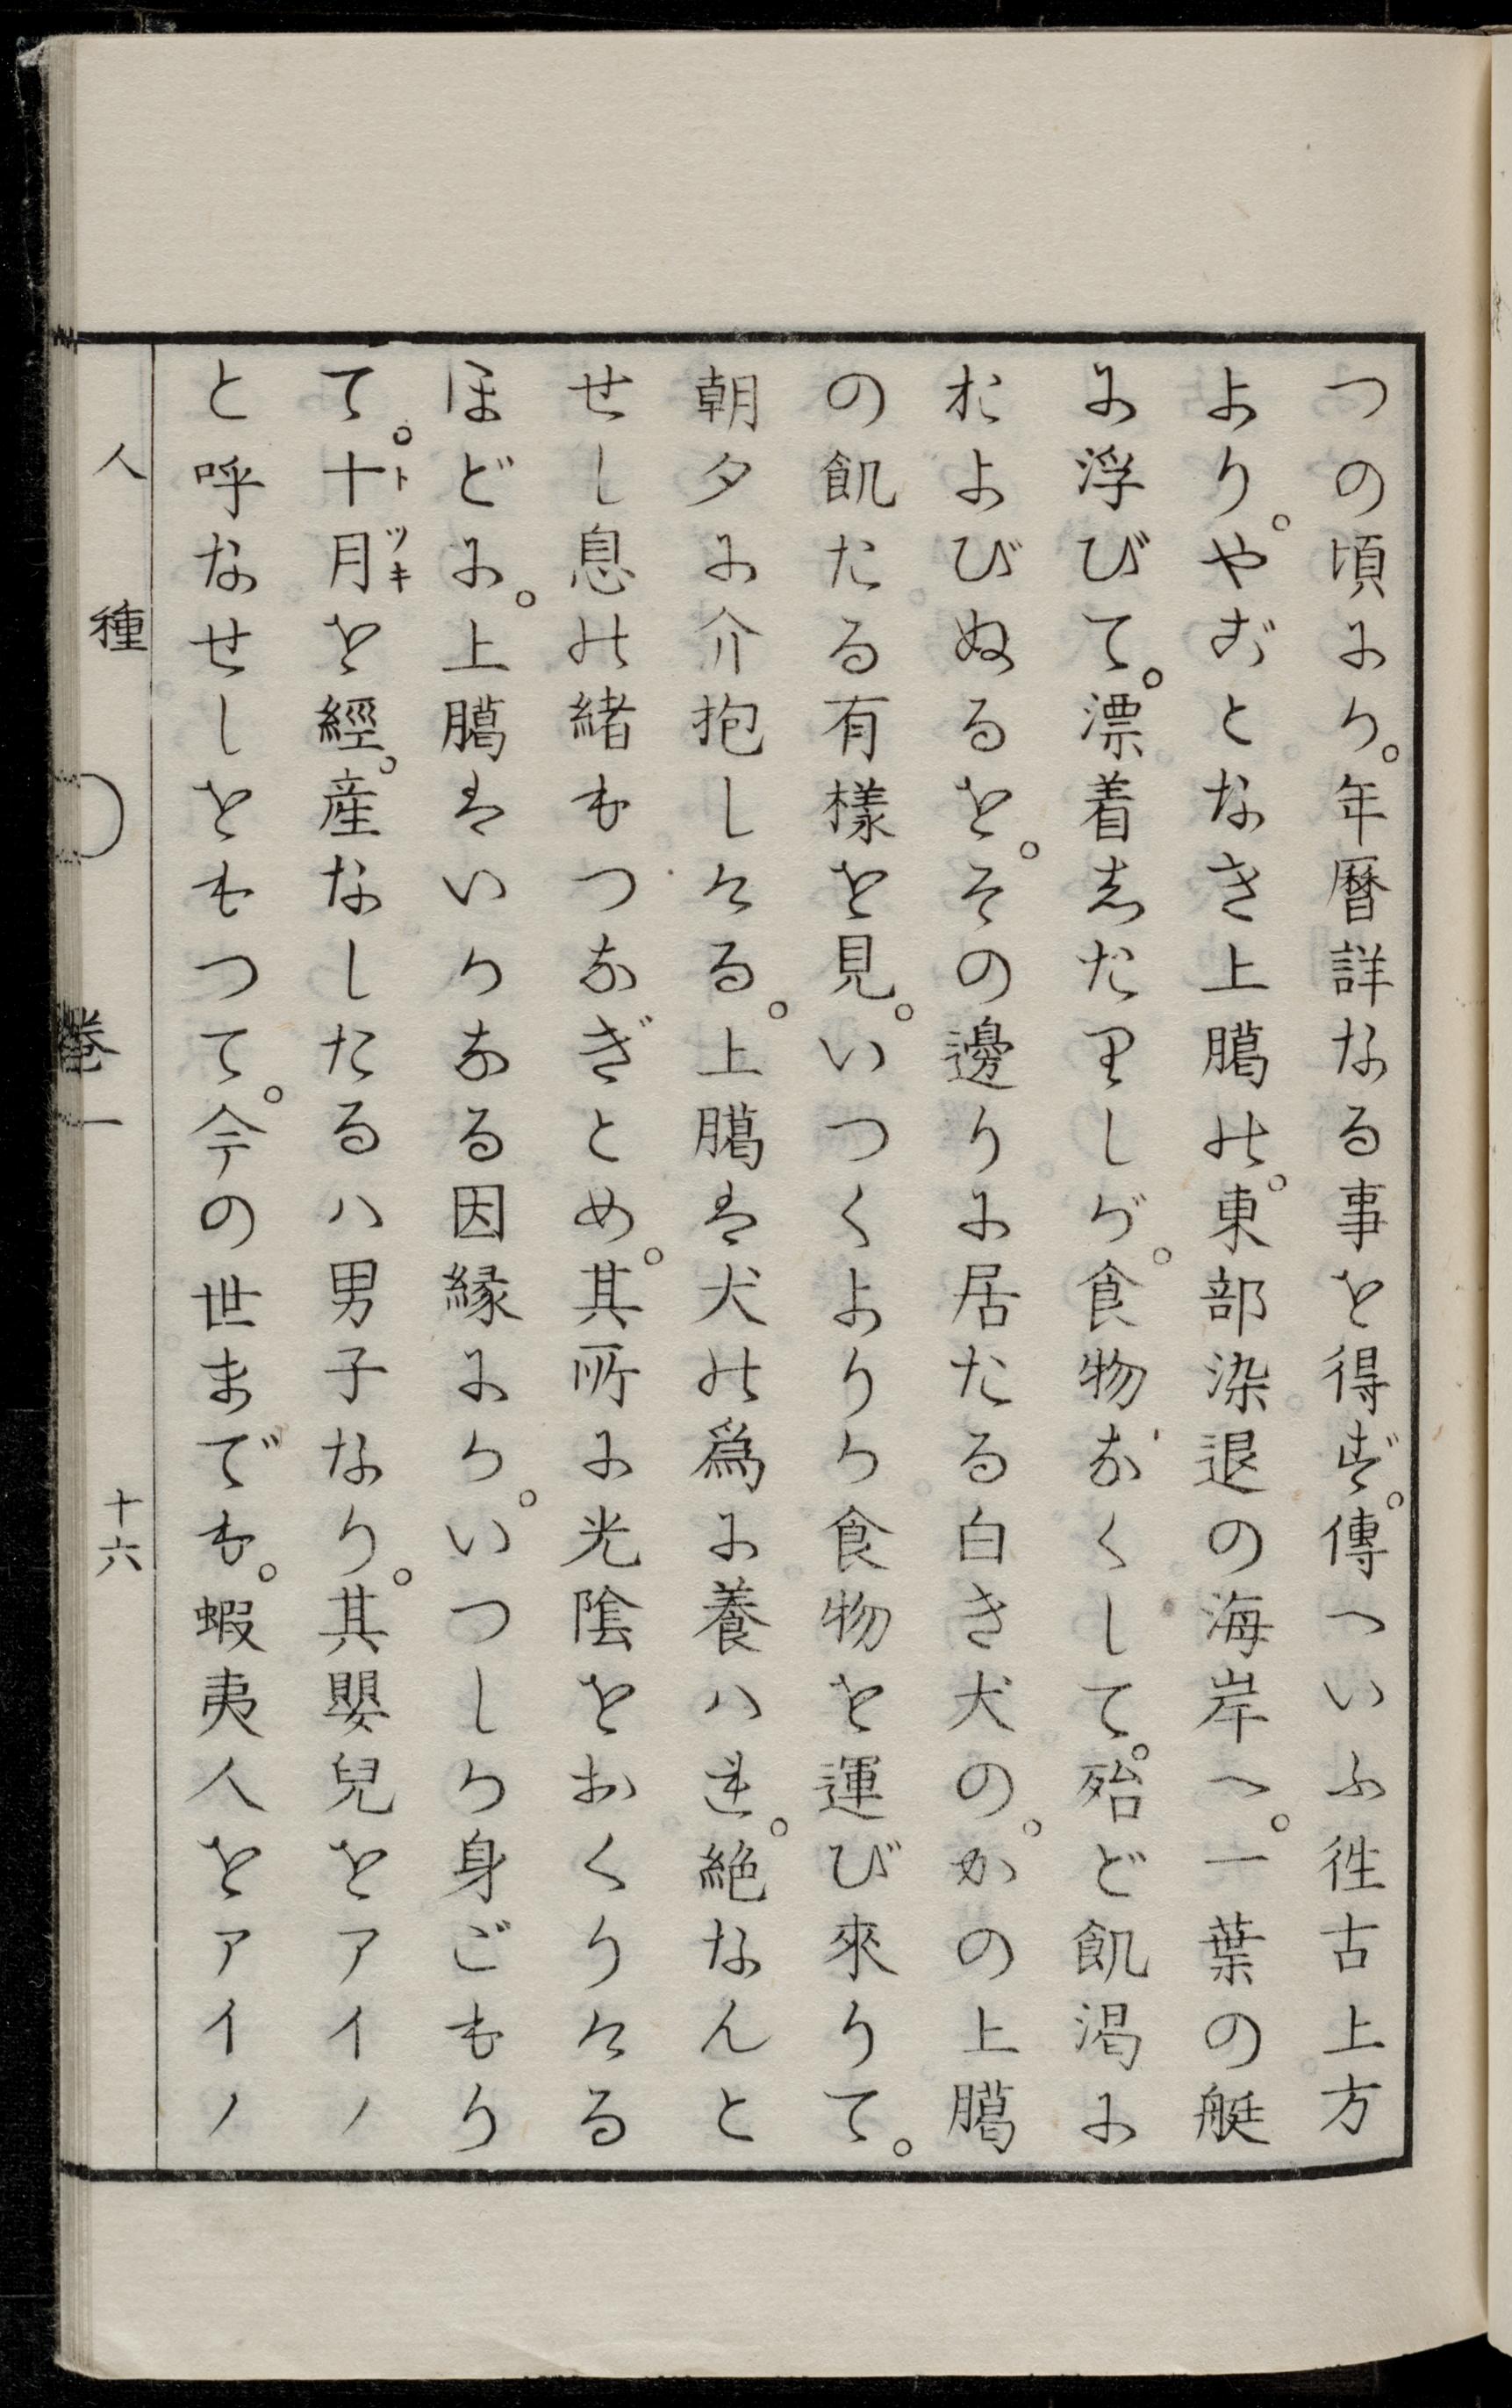 つの頃にか。年曆詳なる事を得ず。傳へいふ徃古上方
より。やごとなき上臈の。東部染退の海岸へ。一葉の艇
に浮びて。漂着したりしが。食物なくして。殆ど飢渇に
およびぬるを。その邊りに居たる白き犬の。かの上臈
の飢たる有樣を見。いつくよりか食物を運び來りて。
朝夕に介抱しける。上臈は犬の爲に養ハれ。絶なんと
せし息の緒もつなぎとめ。其所に光陰をおくりける
ほどに。上臈はいかなる因縁にか。いつしか身ごもり
て。十月を經。産なしたるハ男子なり。其嬰兒をアイノ
と呼なせしをもつて。今の世までも。蝦夷人をアイノ
トツキ
人種 卷一 十六